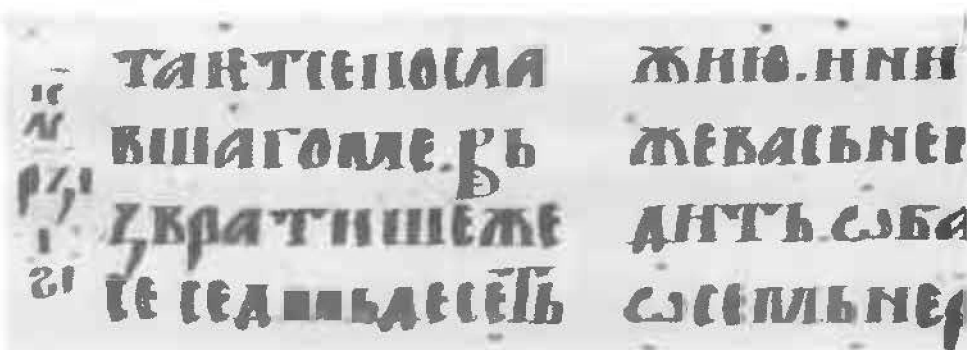 таѥтсепосла
вшагоме. въ
звратишеже
се сед ьдесеть
жию.ини
жевасьнев
дить ѡба
ѡсемьнер